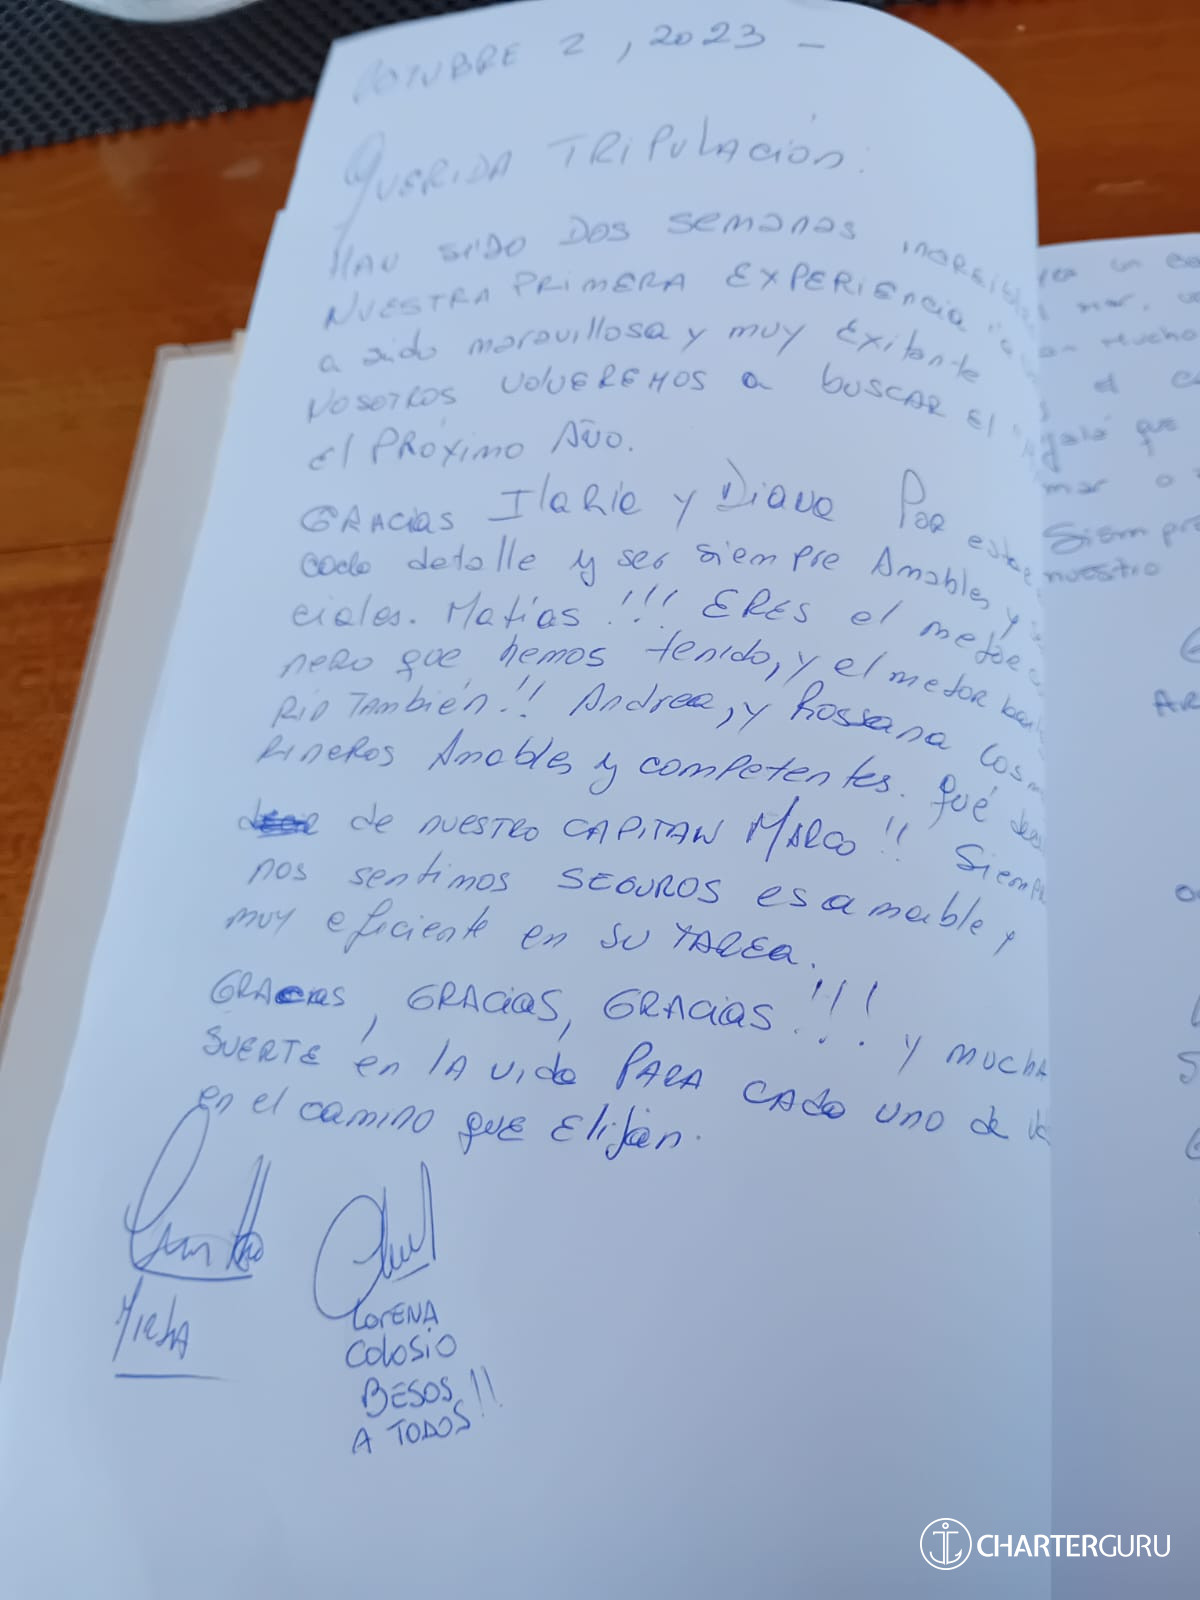 OCTUBRE 2, 2023 -
QUERIDA TRIPULACIÓN:
HAN SIDO DOS SEMANAS INCREIBLES
NUESTRA PRIMERA EXPERIENCIA
a sido maravillosa y muy Exitante
NOSOTROS VOLVEREMOS a buscar El
el PRÓXIMO AÑO.
GRACIAS Ilaria y Diana Por estar
cada detalle y ser siempre Amables y
ciales. Matías !!! ERES el mejor
nero que hemos tenido, y el mejor
RIO También!! Andrea, y Rossana los
RINEROS Amables y competentes. qué
de nuestro CAPITAN MARCO!! Siempre
nos sentimos SEGUROS es amable y
muy eficiente en SU TAREA.
GRACIAS, GRACIAS, GRACIAS!!! y mucha
SUERTE en la vida PARA CADA UNO de
en el camino que Elijan.
Mirta
LORENA
COLOSIO
BESOS !!
A TODOS
mar.
mucho
el
que
mar o
Siempre
nuestro
AR
CHARTERGURU